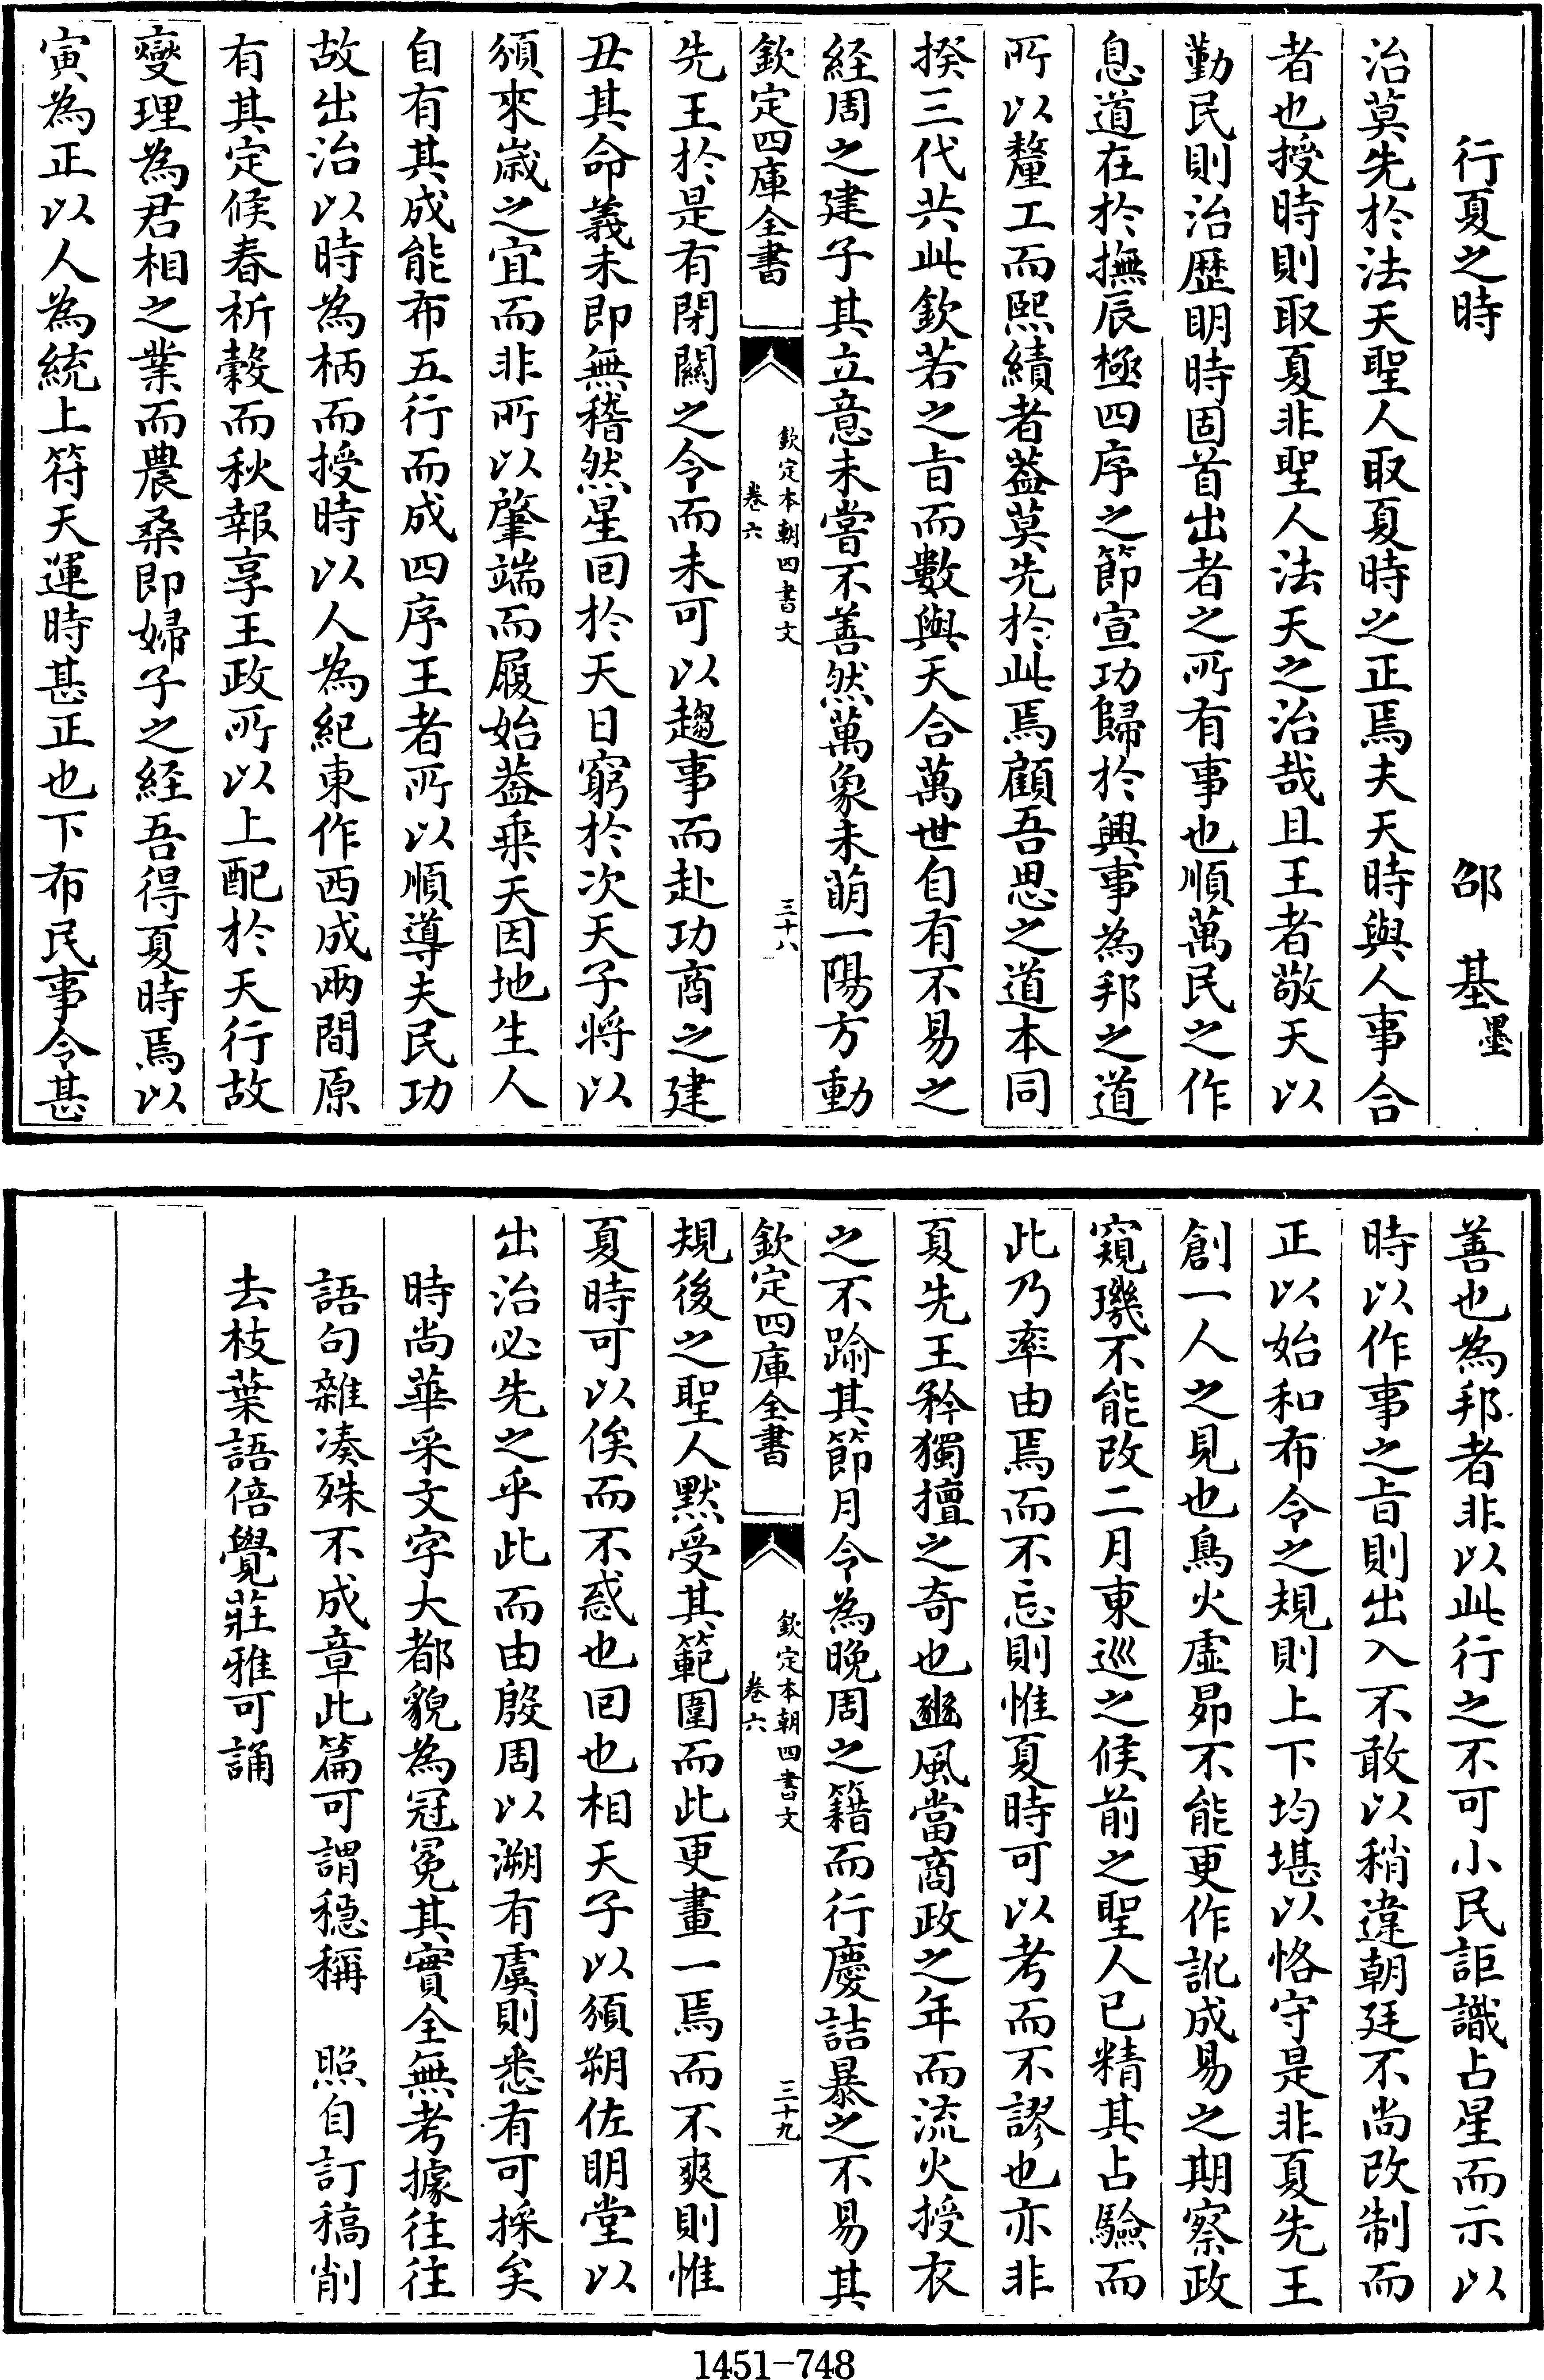 行夏之時　邵　基墨
治莫先於法天聖人取夏時之正焉夫天時與人事合
者也授時則取夏非聖人法天之治哉且王者敬天以
勤民則治歷明時固首出者之所有事也順萬民之作
息道在於撫辰極四序之節宣功歸於興事為邦之道
所以釐工而熙績者葢莫先於此焉顧吾思之道本同
揆三代共此欽若之旨而數與天合萬世自有不易之
経周之建子其立意未嘗不善然萬象未萌一陽方動
欽定四庫全書
欽定本朝四書文
卷六
三十八
先王於是有閉關之令而未可以趨事而赴功商之建
丑其命義未即無稽然星回於天日窮於次天子将以
頒來歳之宜而非所以肇端而履始葢乗天因地生人
自有其成能布五行而成四序王者所以順導夫民功
故出治以時為柄而授時以人為紀東作西成兩間原
有其定候春祈穀而秋報享王政所以上配於天行故
燮理為君相之業而農桑即婦子之経吾得夏時焉以
寅為正以人為統上符天運時甚正也下布民事令甚
善也為邦者非以此行之不可小民詎識占星而示以
時以作事之旨則出入不敢以稍違朝廷不尚改制而
正以始和布令之規則上下均堪以恪守是非夏先王
創一人之見也鳥火虛昴不能更作訛成易之期察政
窺璣不能改二月東巡之候前之聖人已精其占驗而
此乃率由焉而不忘則惟夏時可以考而不謬也亦非
夏先王矜獨擅之奇也豳風當商政之年而流火授衣
之不踰其節月令為晚周之籍而行慶詰暴之不易其
欽定四庫全書
欽定本朝四書文
卷六
三十九
規後之聖人黙受其範圍而此更畫一焉而不爽則惟
夏時可以俟而不惑也回也相天子以頒朔佐明堂以
出治必先之乎此而由殷周以溯有虞則悉有可採矣
時尚華采文字大都貌為冠冕其實全無考據往往
語句雜凑殊不成章此篇可謂穏稱　照自訂稿削
去枝葉語倍覺莊雅可誦
1451-748